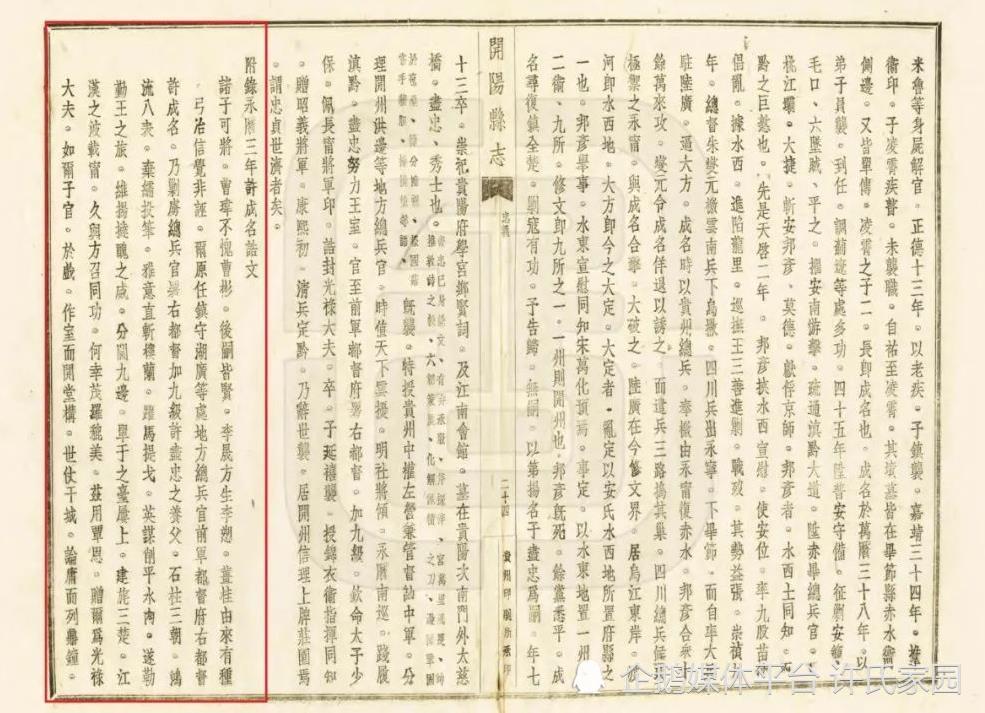 米魯等身屍解官。正德十三年。以老疾。子鎮襲。嘉靖三十四年。
衞印。子凌霄疾瞽。未襲職。自祐至凌霄。其墳墓皆在畢節縣赤水衞
側邊。又皆單傳。凌霄之子二。長即成名也。成名於萬曆三十八年。以
弟子員襲。到任。調藺遼等處多功。四十五年陞普安守備。征剿安
毛口、六墜賊、平之。擢安南游擊。疏通滇黔大道。陞赤畢總兵官。
桃江壩。大捷。斬安邦彥、莫德。獻俘京師。邦彥者。水西土同知。
黔之巨憝也。先是天啓二年。邦彥挾水西宣慰。使安位。率九股苗
倡亂。據水西。進陷龍里。巡撫王三善進剿。戰歿。其勢益張。崇禎
年。總督朱燮元檄雲南兵下烏撒。四川兵出永寧。下畢節。而自率大
駐陸廣。逼大方。成名時以貴州總兵。奉檄由永寧復赤水。邦彥合
餘萬來攻。燮元令成名佯退以誘之。而遣兵三路搗其巢。四川總兵侯
極禦之永寧。與成名合擊。大破之。陸廣在今修文界。居烏江東岸。
河即水西地。大方即今之大定。大定者。亂定以安氏水西地所置府縣之
一也。邦彥舉事。水東宣慰同知宋萬化預焉。事定。以水東地置一州
二衞、九所。修文即九所之一。一州則開州也。邦彥旣死。餘黨悉平。成
名尋復鎮全楚。剿寇有功。予告歸。無嗣。以第揚名子盡忠爲嗣。年七
開陽縣志
忠義
二十四
貴州印刷所承印
十三卒。崇祀貴陽府學宮鄉賢祠。及江南會館。墓在貴陽次南門外太慈
橋。盡忠、秀士也。
旣襲。特授貴州中權左營兼管督訥中軍。分
理開州洪邊等地方總兵官。時值天下雲擾。明社將傾。永曆南巡。踐履
滇黔。盡忠努力王室。官至前軍都督府署右都督。加九級。欽命太子少
保。佩長甯將軍印。誥封光祿大夫。卒。子延禧襲。授錦衣衞指揮同知
。贈昭義將軍。康熙初。清兵定黔。乃辭世襲。居開州信理上牌莊園焉
。謂忠貞世濟者矣。
附錄永曆三年許成名誥文
諾于可將。曹瑋不愧曹彬。後嗣皆賢。李晟方生李愬。蓋桂由來有種
。弓冶信覺非誣。爾原任鎮守湖廣等處地方總兵官前軍都督府右都督
許成名。乃剿虜總兵官署右都督加九級許盡忠之養父。石柱三朝。鴻
流八表。棄繻投筆。雅意直斬樓蘭。躍馬提戈。英謀削平永內。遂勒
勤王之旅。維揚撻醜之威。分閫九邊。單于之臺屢上。建旄三楚。江
漢之波載甯。久與方召同功。何幸茂羅魏美。茲用覃恩。贈爾爲光祿
大夫。如爾子官。於戲。作室而開堂構。世仗干城。論庸而列鼎鐘。
企鹅媒体平台 许氏家园